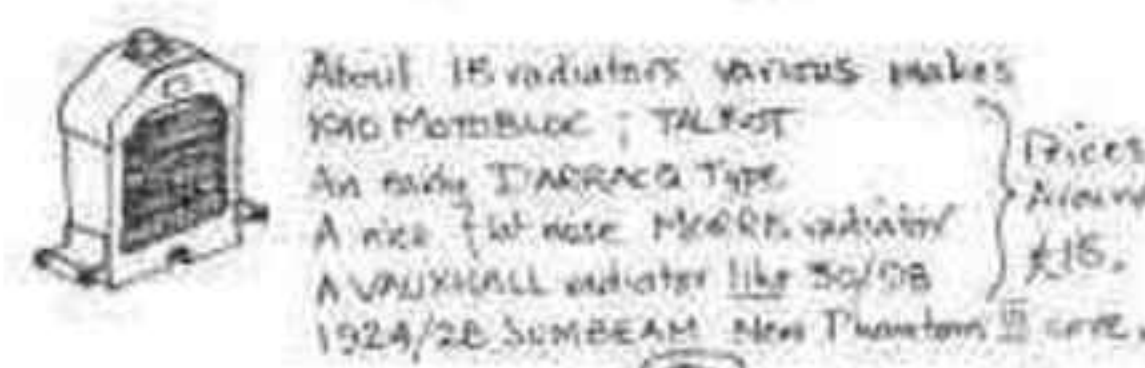 About 15 radiators various makes
1910 MOTOBLOC ; TALBOT
An early DARRACQ TYPE
A nice flat nose MORRIS radiator
A VAUXHALL radiator like 30/98
1924/28 SUMBEAM New Phantom III core,
Prices
Around
£15.